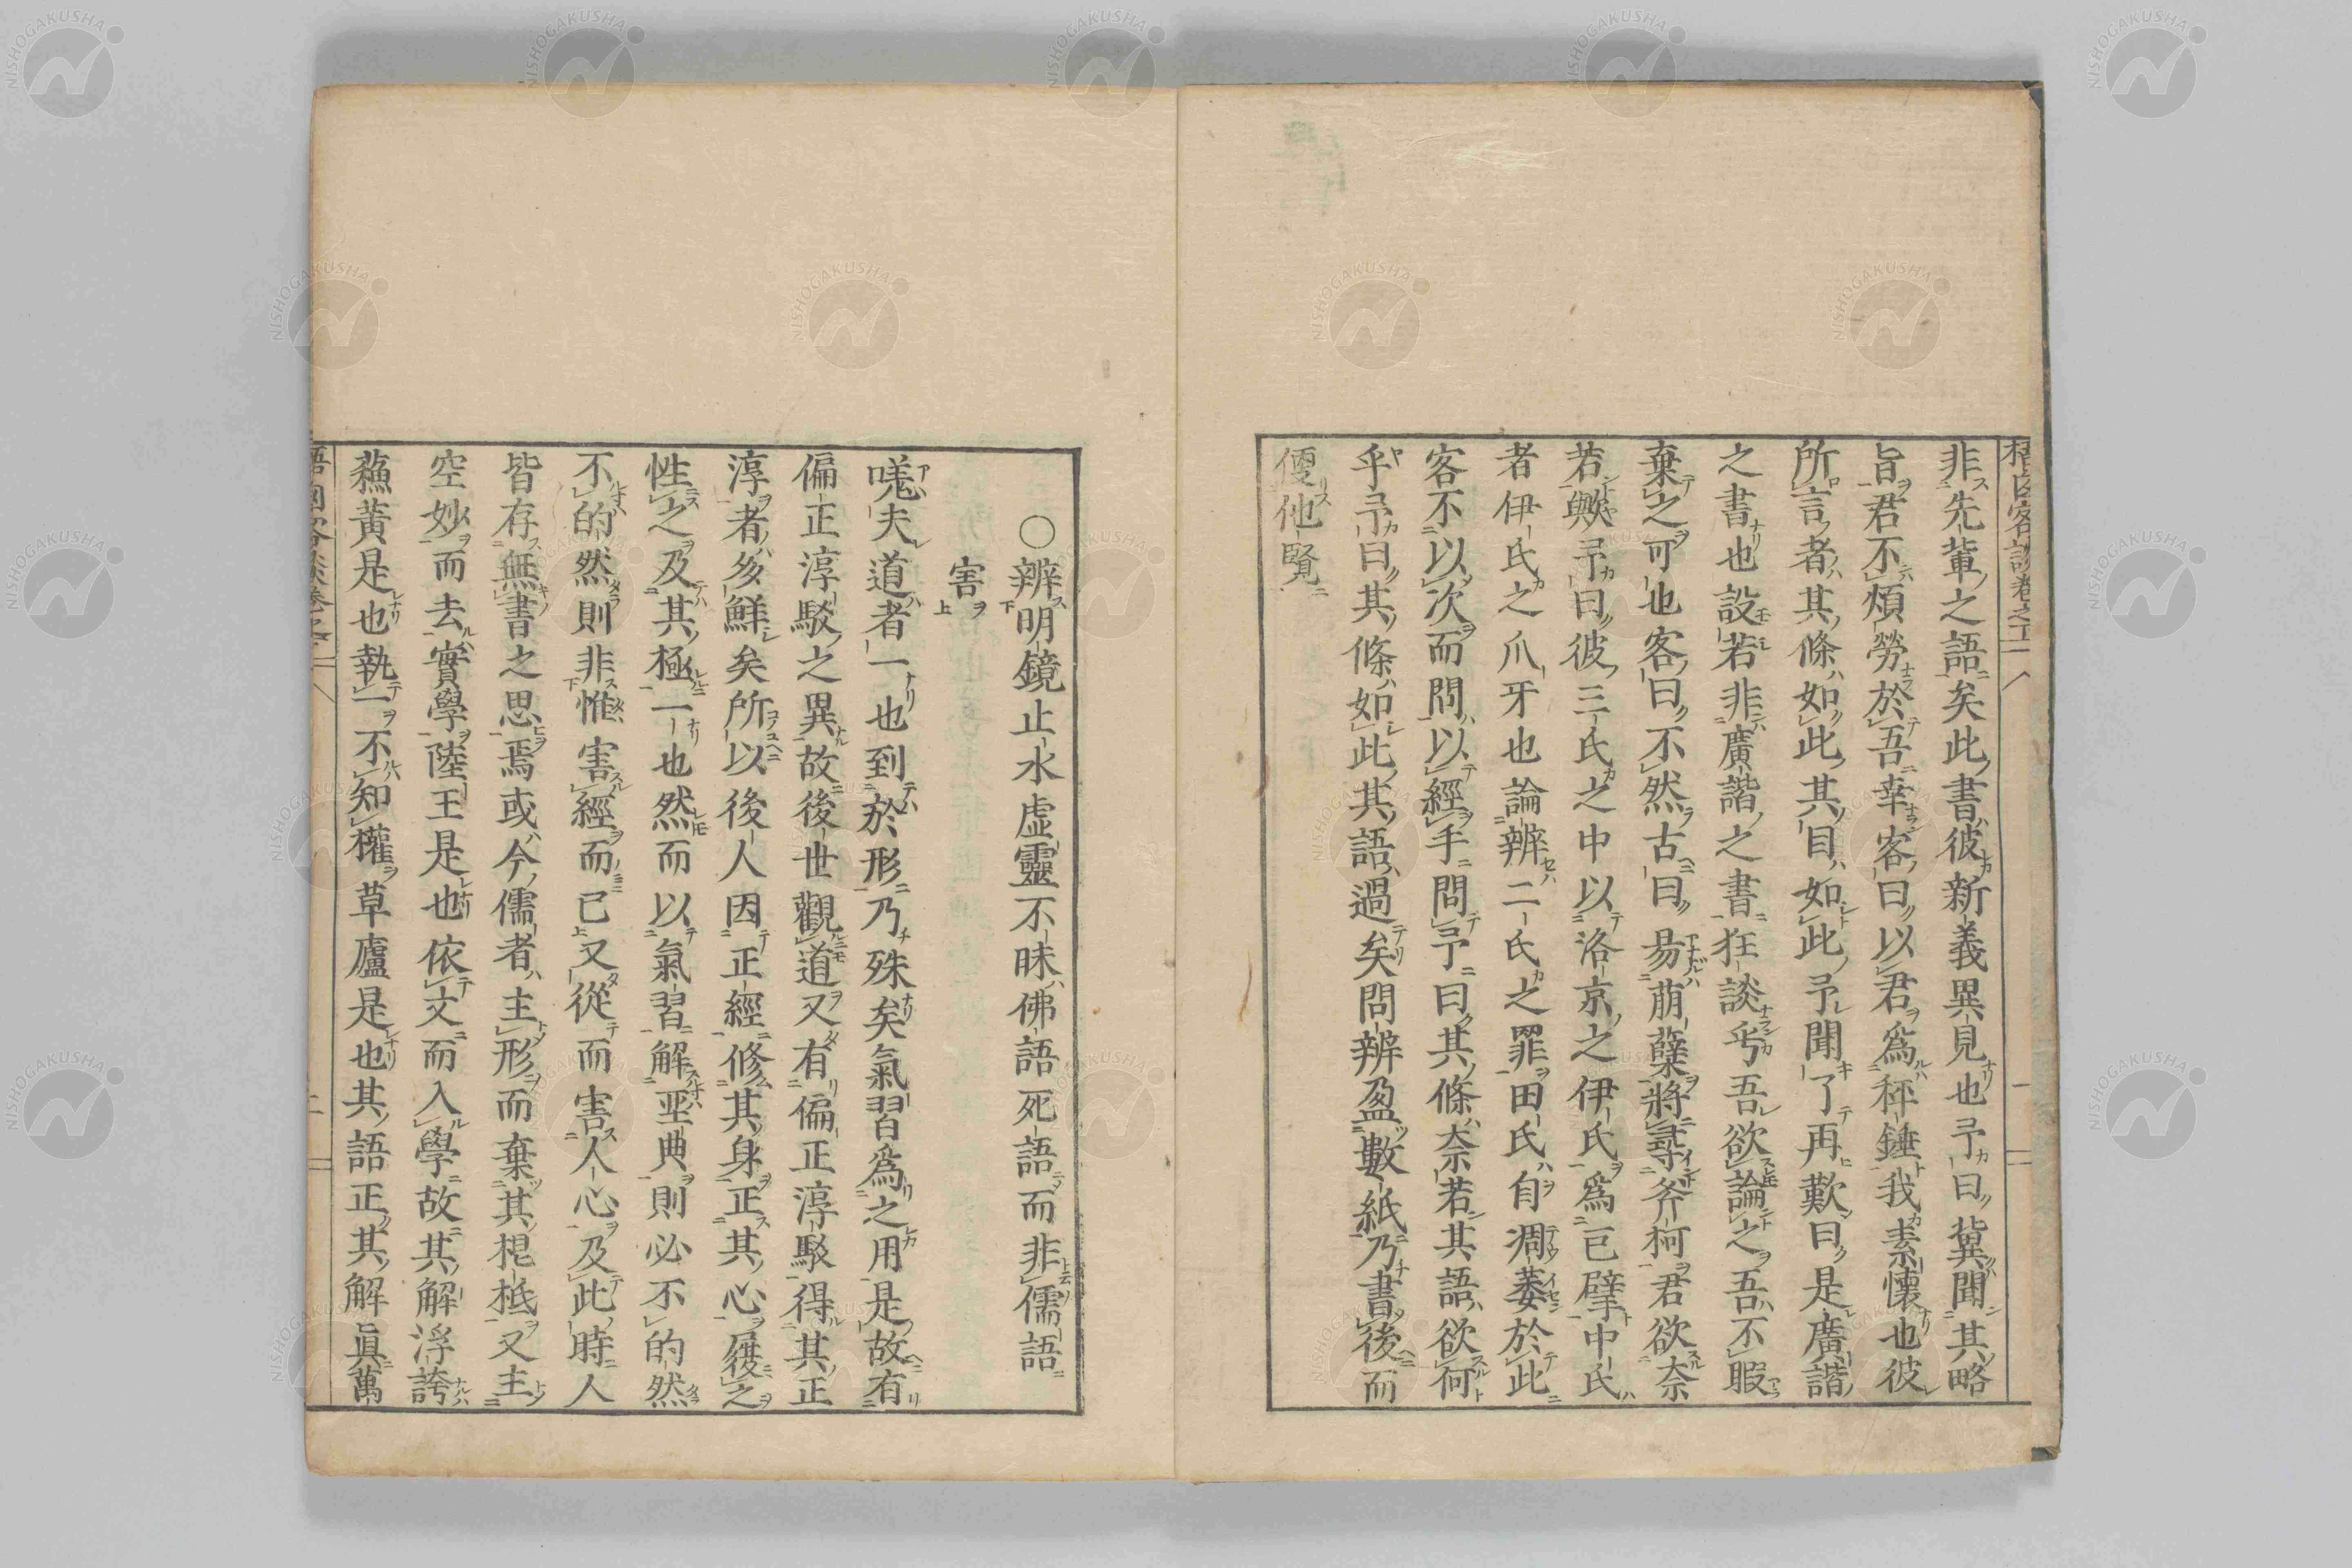 非先輩之語矣此書彼新義異見也予曰冀聞其略
旨君不煩勞於吾幸客曰以君爲秤錘我素懐也彼
所言者其條如此其目如此予聞了再歎曰是廣諧
之書也設若非廣諧之書狂談乎吾欲論之吾不暇
棄之可也客曰不然古曰易萠蘖將尋斧柯君欲奈
若歟予曰彼三氏之中以洛京之伊氏爲巨擘中氏
者伊氏之爪牙也論辨二氏之罪田氏自凋萎於此
客不以次而問以經手問予曰其條奈若其語欲何
乎予曰其條如此其語過矣問辨盈數紙乃書後而
便他賢
○辨明鏡止水虛靈不昧佛語死語而非儒語
害
嘅夫道者一也到於形乃殊矣氣習爲之用是故有
偏正淳駁之異故後世觀道又有偏正淳駁得其正
淳者多鮮矣所以後人因正經修其身正其心履之
性之及其極一也然而以氣習解巠典則必不的然
不的然則非惟害經而已又從而害人心及此時人
皆存無書之思焉或今儒者主形而棄其棍柢又主
空妙而去實學陸王是也依文而入學故其解浮誇
蘓黃是也執一不知權草廬是也其語正其解眞萬